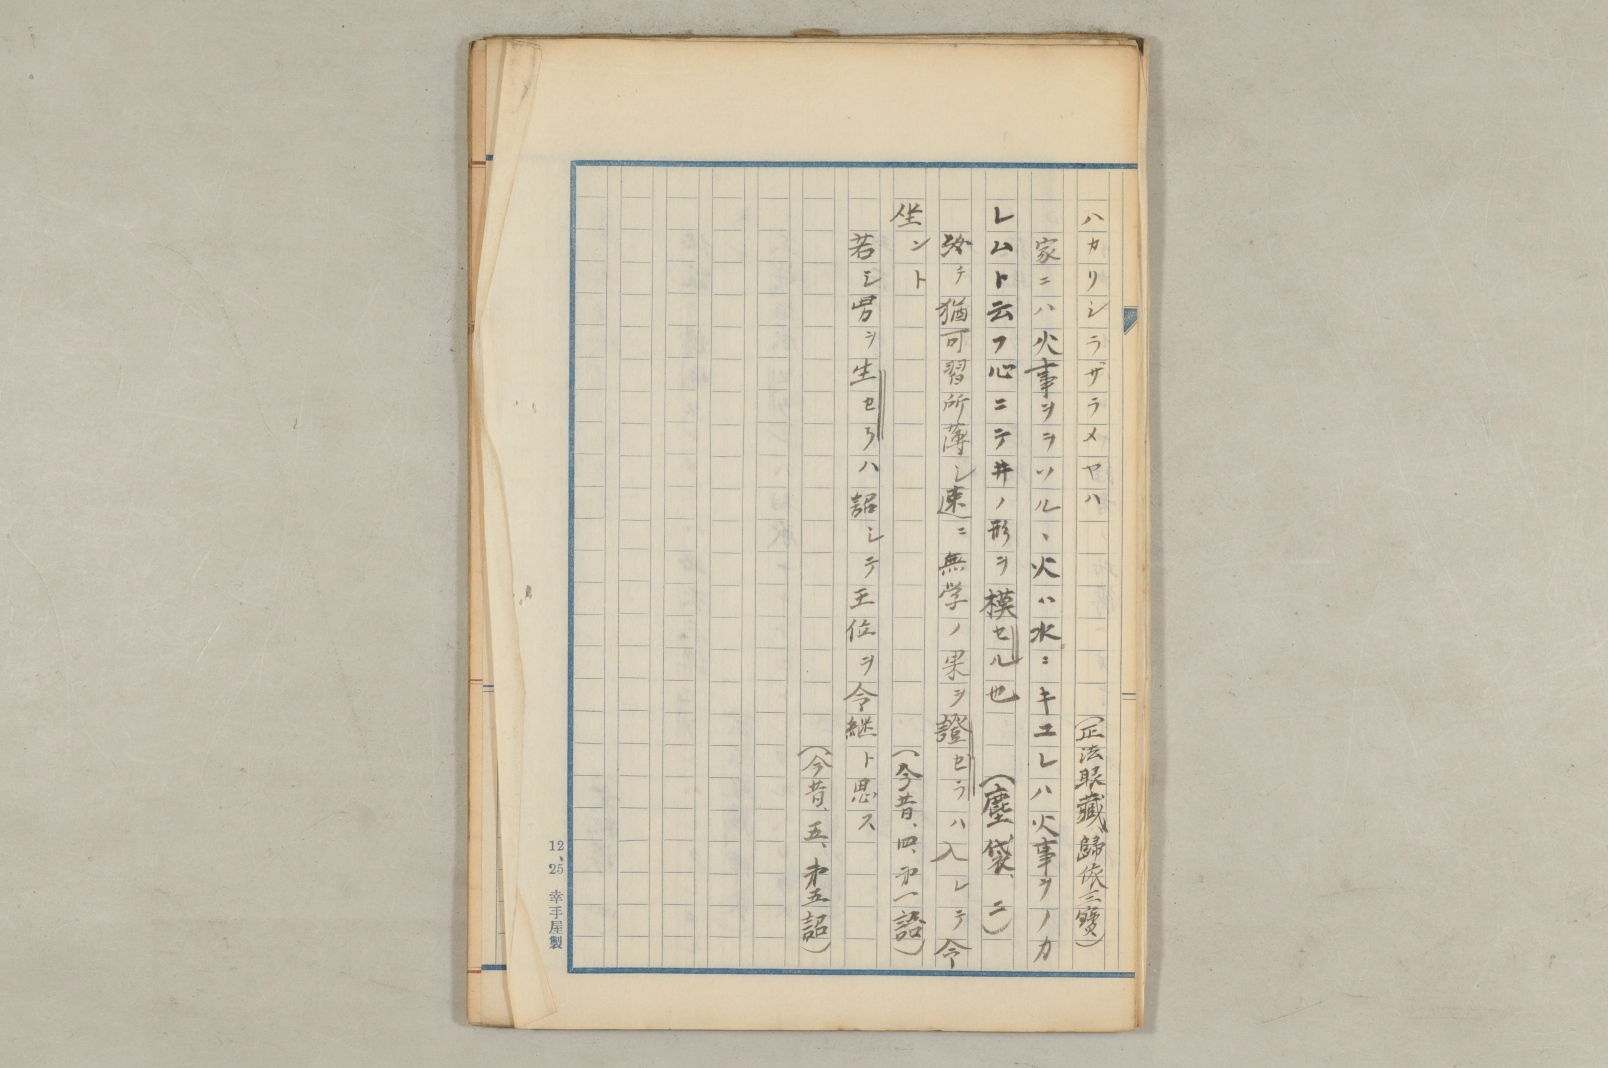 ハカリシラザラメヤハ
(正法眼藏、歸依三寶)
家ニハ火事ヲヲソル、火ハ水ニキエレハ火事ヲノカ
レムト云フ心ニテ井ノ形ヲ模セル也
(塵袋、二)
弥テ猶可習所薄シ速ニ無学ノ果ヲ證セラハ入レテ令
坐ント
(今昔、四、第一語)
若シ男ヲ生セラハ詔シテ王位ヲ令継ト思ス
(今昔、五、第五詔)
12、25 幸手屋製